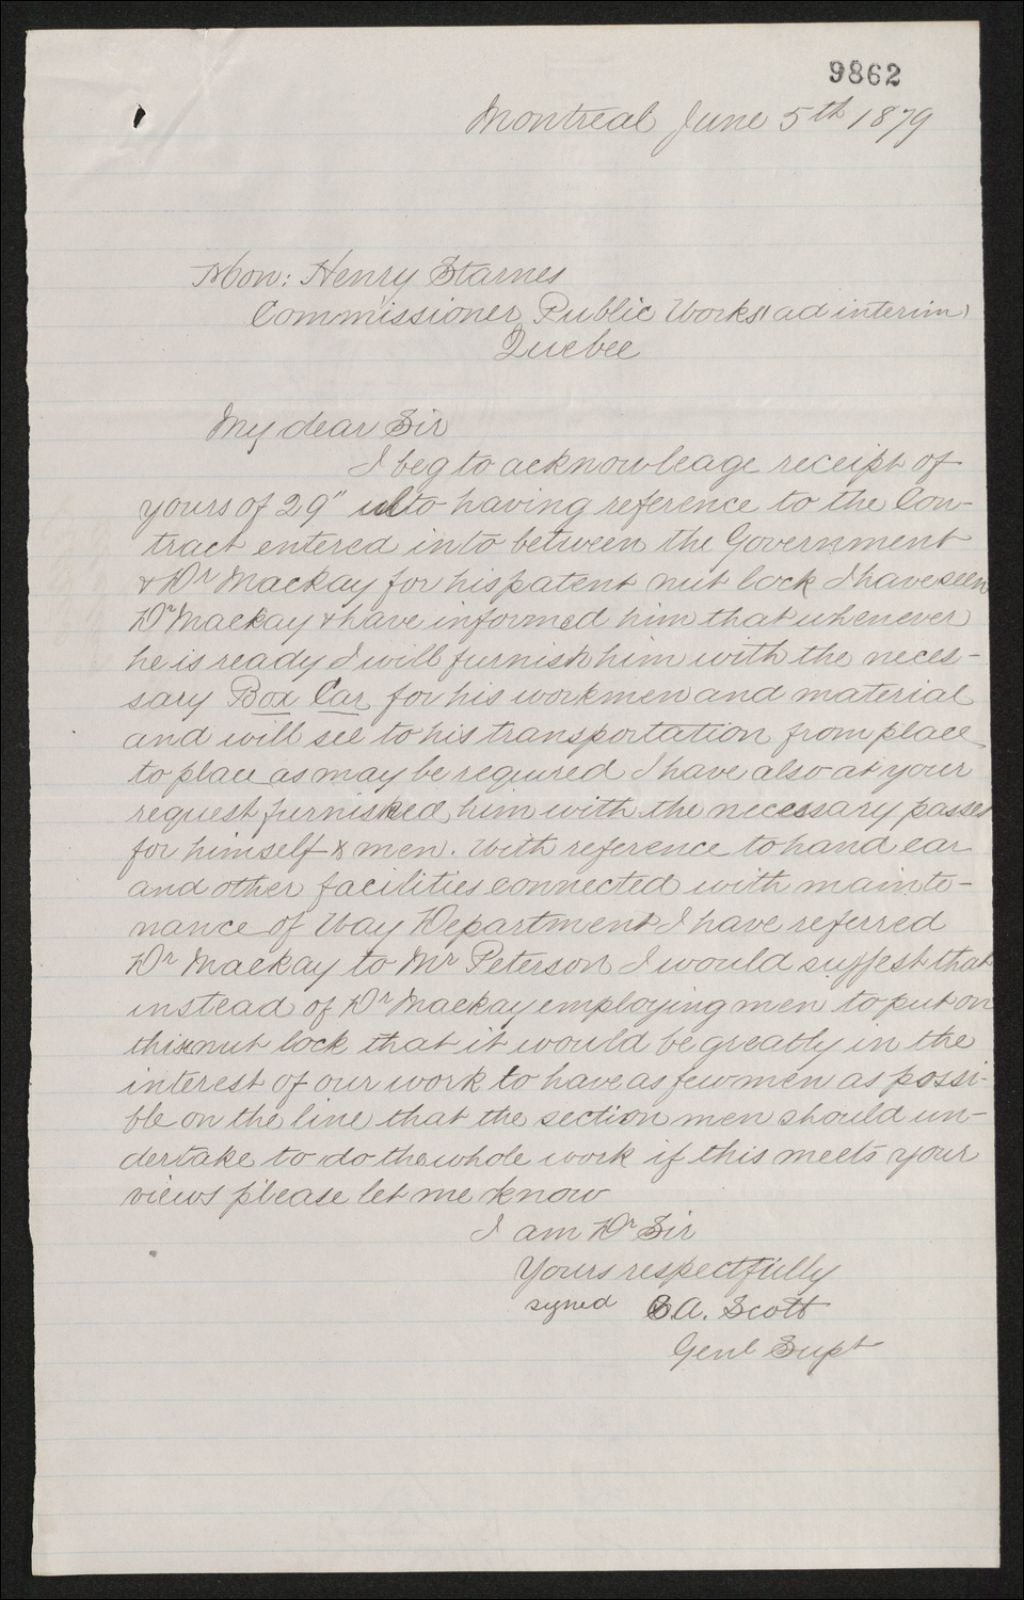 9862
Montreal June 5th 1879
Hon: Henry Starnes
Commissioner Public Works (ad interim)
Quebec
My dear Sir
I beg to acknowleage receipt of
yours of 29" ulto having reference to the Con-
tract entered into between the Government
& Dr Mackay for his patent nut lock I have seen
Dr Mackay & have informed him that whenever
he is ready I will furnish him with the neces-
sary Box Car for his workmen and material
and will see to his transportation from place
to place as may be required I have also at your
request furnished him with the necessary passes
for himself & men. With reference to hand car
and other facilities connected with mainte-
nance of Way Department I have referred
Dr Mackay to Mr Peterson I would suggest that
instead of Dr Mackay employing men to put on
this nut lock that it would be greatly in the
interest of our work to have as few men as possi-
ble on the line that the section men should un-
dertake to do the whole work if this meets your
views please let me know
I am Dr Sir
Yours respectfully
signed A. Scott
Genl Supt